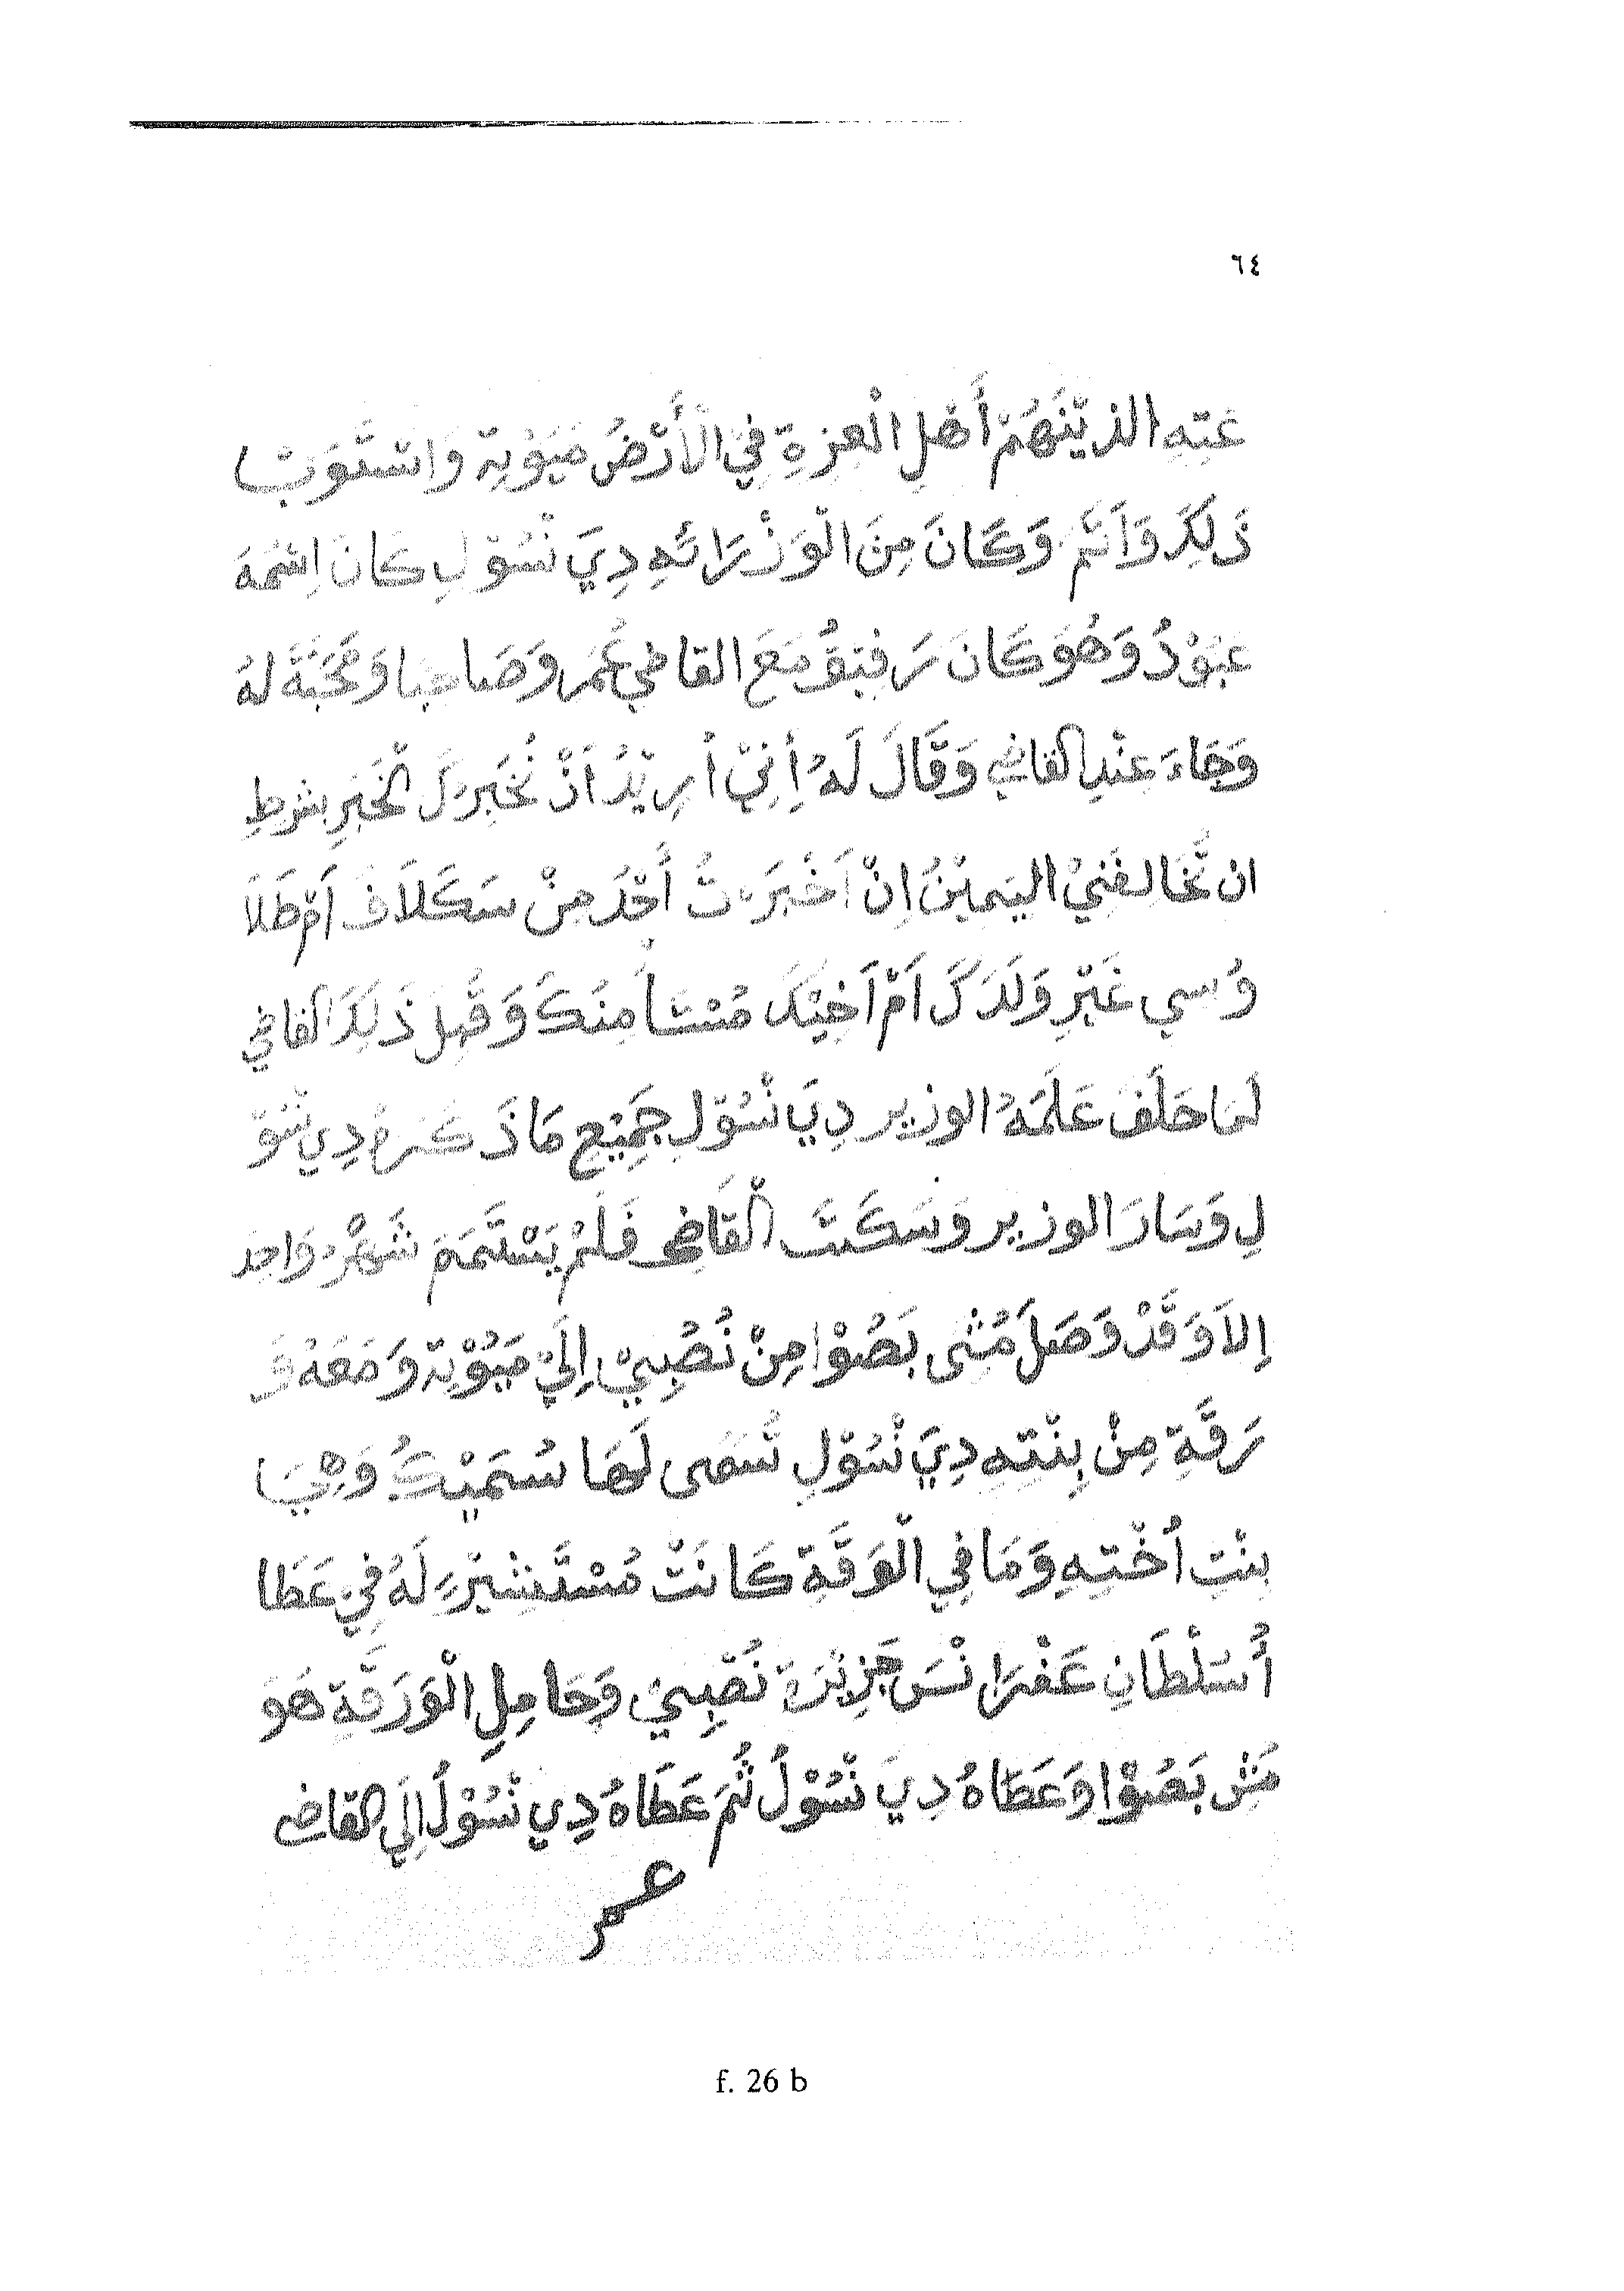 ٦٤
عَتِهِ الذِيْنَهُمْ أَهْلِ الْعِزةِ فِيْ الْأَرْضُ مَيَوْتِة وَاسْتَوَبْ
ذَلِكَ وَاَتَمْ وَكَانَ مِنَ الْوَزْرَائِهِ دِيَ نْسُوْلِ كَانَ اِسْمُهَ
عَبَوْدُ وَهُوَ كَانَ رَفِيقُ مَعَ القاضِي عُمَر وَصَاحِبا وَمُحَبَّةَ لهُ
وَجَاءَ عِنْدِ القاضِي وَقَالَ لَهُ إِنِيْ أُرِيْدُ اَنْ نُخَبِرَكَ الْخَبَرِ بشرطِ
ان تُحَالِفَنِيْ اليَمِيْنُ اِنْ اَخْبَرَتُ أَحْدَ مِنْ سَكَلَافَ اَمْ طَلَا
وُسِي غَيْرِ وَلَدَكَ اَمْ اَخِيْكَ مُنْسَا مِنَكَ وَقَبِلَ ذَلِكَ القاضِي
لَمَا حَلَفَ عَلَمَهُ الوزير دِيَ نْسُوْلِ جَمِيْعِ مَا ذَكَرهُ دِي نْسُوْ
لِ وَسَارَ الوزير وَسَكَتَ الْقاضِي فَلَمْ يَسْتَمَمَ شَهْرُ وَاحِدَ
اِلاَ وَقَدْ وَصَلَ مُشِى بَصُوْا مِنْ نُصْبِيْ اِلَيْ مَيُوْتِة وَمَعَهُ وَ
رَقَّةِ مِنْ بِنْتِهِ دِيَ نْسُوْلِ تُسَمَى لَهَا سُمَيْتُ وَهِيَ
بِنْتِ اُخْتِهِ وَمَا فِي الْوَقَّةِ كَانَتْ مُسْتَشِيْرَةِ لَهُ فِيْ عَطَا
أُسُلْطَانِ عَفْرَانْسَ جَزِيْرَة نُصْبِيْ وَحَامِلِ الْوَرَقَّةِ هُوَ
مُشِ بَصُوْا وَعَطَاهُ دِيَ نْسُوْلُ ثُمَ عَطَاهُ دِي نْسُوْلُ اِلَي القاضِي
عمر
f. 26 b